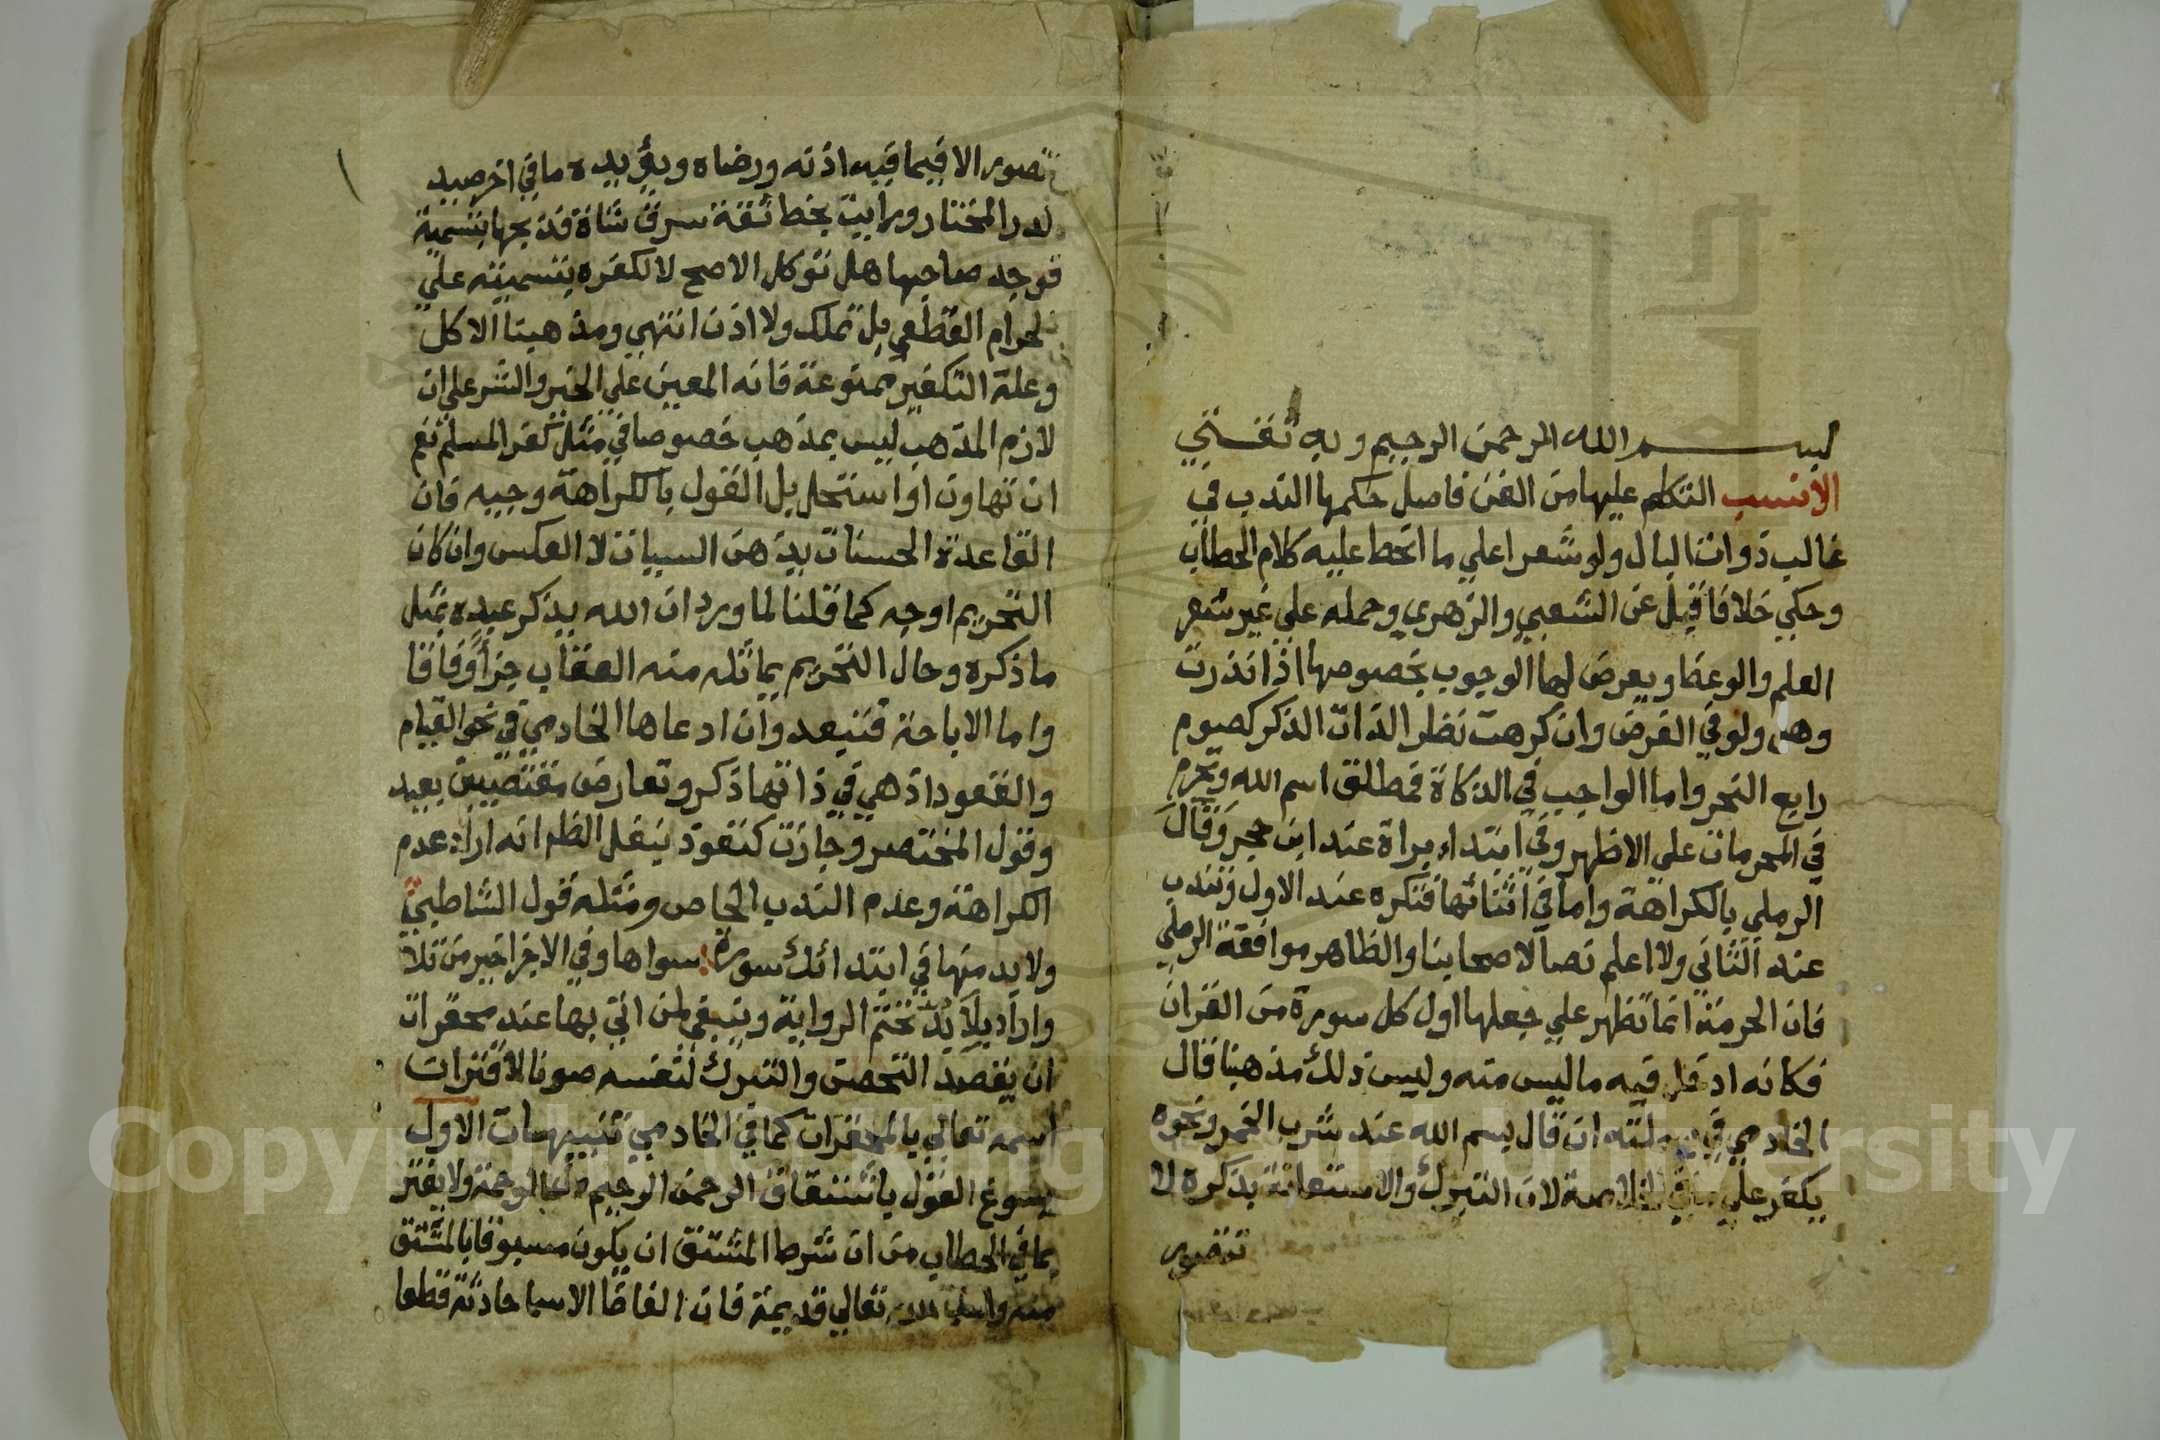 بسم الله الرحمن الرحيم وبه ثقتي
الانسب التكلم عليها من الفن فاصل حكمها الندب في
غالب ذوات البال ولو شعرا علي ما انحط عليه كلام الحطاب
وحكي خلافا قيل عن الشعبي والزهري وحمله علي غير شعر
العلم والوعظ ويعرض لها الوجوب بخصوصها اذا نذرت
وهل ولو في الفرض وان كرهت نظر الذات الذكر كصوم
رابع النحر واما الواجب في الذكاة فمطلق اسم الله وتحرم
في المحرمات علي الاظهر وفي ابتداء براة عند ابن حجر وقال
الرملي بالكراهة واما في اثنائها فتكره عند الاول وتندب
عند الثاني ولا اعلم نصا لاصحابنا والظاهر موافقة الرملي
فان الحرمة انما تظهر علي جعلها اول كل سورة من القران
فكانه ادخل فيه ما ليس منه وليس ذلك مذهبنا قال
الخادمي في بسملته ان قال بسم الله عند شرب الخمر ونحوه
يكفر علي ما في الخلاصة لان التبرك والاستعانة بذكره لا
تتصور
تتصور الا فيما فيه اذنه ورضاه ويؤيده ما في اخر صيد
الدر المختار ورايت بخط ثقة سرق شاة فذبحها بتسمية
فوجد صاحبها هل توكل الاصح لا لكفره بتسميته علي
الحرام القطعي بل تملك ولا اذن انتهي ومذهبنا الاكل
وعلة التكفير ممنوعة فانه المعين علي الخير والشر علي ان
لازم المذهب ليس بمذهب خصوصا في مثل كفر المسلم نعم
ان تهاون او استحل بل القول بالكراهة وجيه فان
القاعدة الحسنات يذهبن السيات لا العكس وان كان
التحريم اوجه كما قلنا لما ورد ان الله يذكر عبده بمثل
ما ذكره وحال التحريم يماثله منه العقاب جزاء وفاقا
واما الاباحة فتبعد وان ادعاها الخادمي في نحو القيام
والقعود اذ هي في ذاتها ذكر وتعارض مقتضيين بعيد
وقول المختصر وجازت كتعوذ بنفل الظ انه اراد عدم
الكراهة وعدم الندب الخاص ومثله قول الشاطبي
ولا بد منها في ابتدائك سورة سواها وفي الاجزا خير من تلا
واراد بلا بد تحتم الرواية وينبغي لمن اتي بها عند محقرات
ان يقصد التحصن والتبرك لنفسه صونا لاقتران
اسمه تعالي بالمحقرات كما في الخادمي تنبيهات الاول
يسوغ القول باشتقاق الرحمن الرحيم من الرحمة ولا يغتر
بما في الحطاب من ان شرط المشتق ان يكون مسبوقا بالمشتق
منه واسما الله تعالي قديمة فان الفاظ الاسما حادثة قطعا